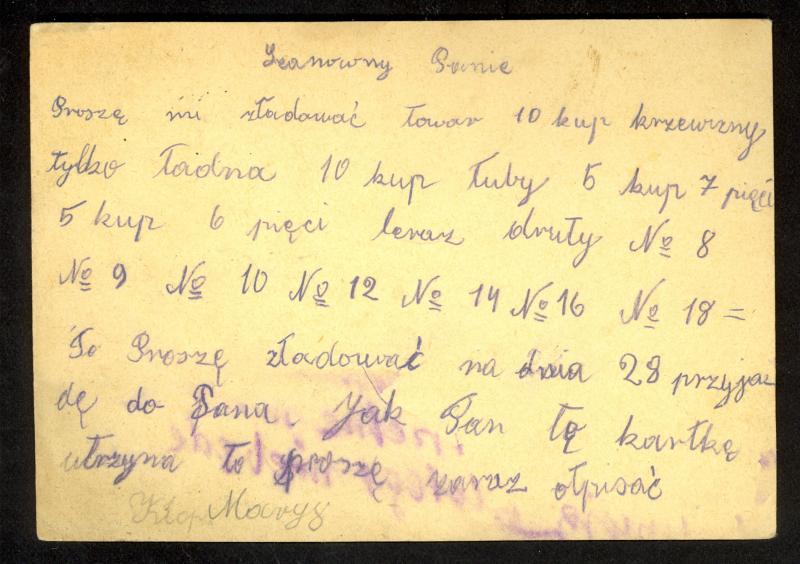 Szanowny Panie
Proszę mi zładować towar 10 kup krzewizny
tylko ładna 10 kup łuby 5 kup 7 pięći
5 kup 6 pięci teraz druty № 8
№ 9 № 10 № 12 № 14 № 16 № 18 =
To Proszę zładować na dnia 28 przyjaz
dę do Pana. Jak Pan tę kartkę
utrzyna to proszę zaraz otpisać